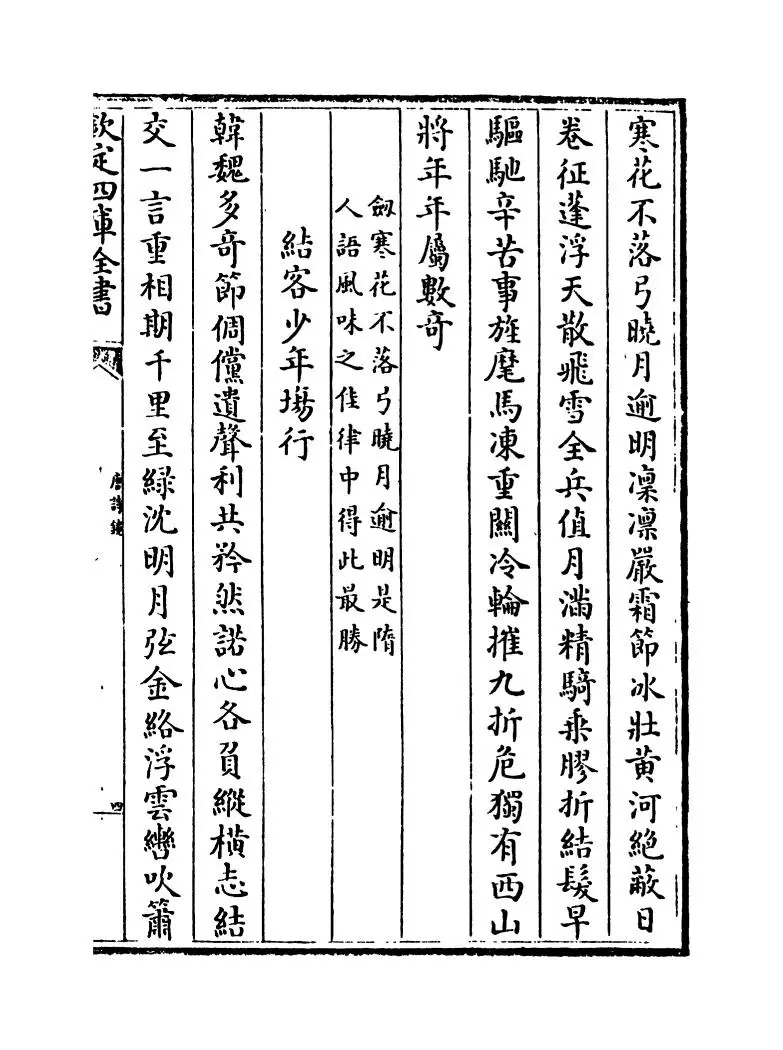 寒花不落弓曉月逾明凜凜嚴霜節冰壯黃河絶蔽日
卷征蓬浮天散飛雪全兵值月滿精騎乗膠折結髮早
驅馳辛苦事旌麾馬凍重關冷輪摧九折危獨有西山
將年年屬數奇
劔寒花不落弓曉月逾明是隋
人語風味之佳律中得此最勝
結客少年塲行
韓魏多奇節倜儻遺聲利共矜然諾心各負縱橫志結
交一言重相期千里至緑沈明月弦金絡浮雲轡吹簫
欽定四庫全書
唐詩鏡
四